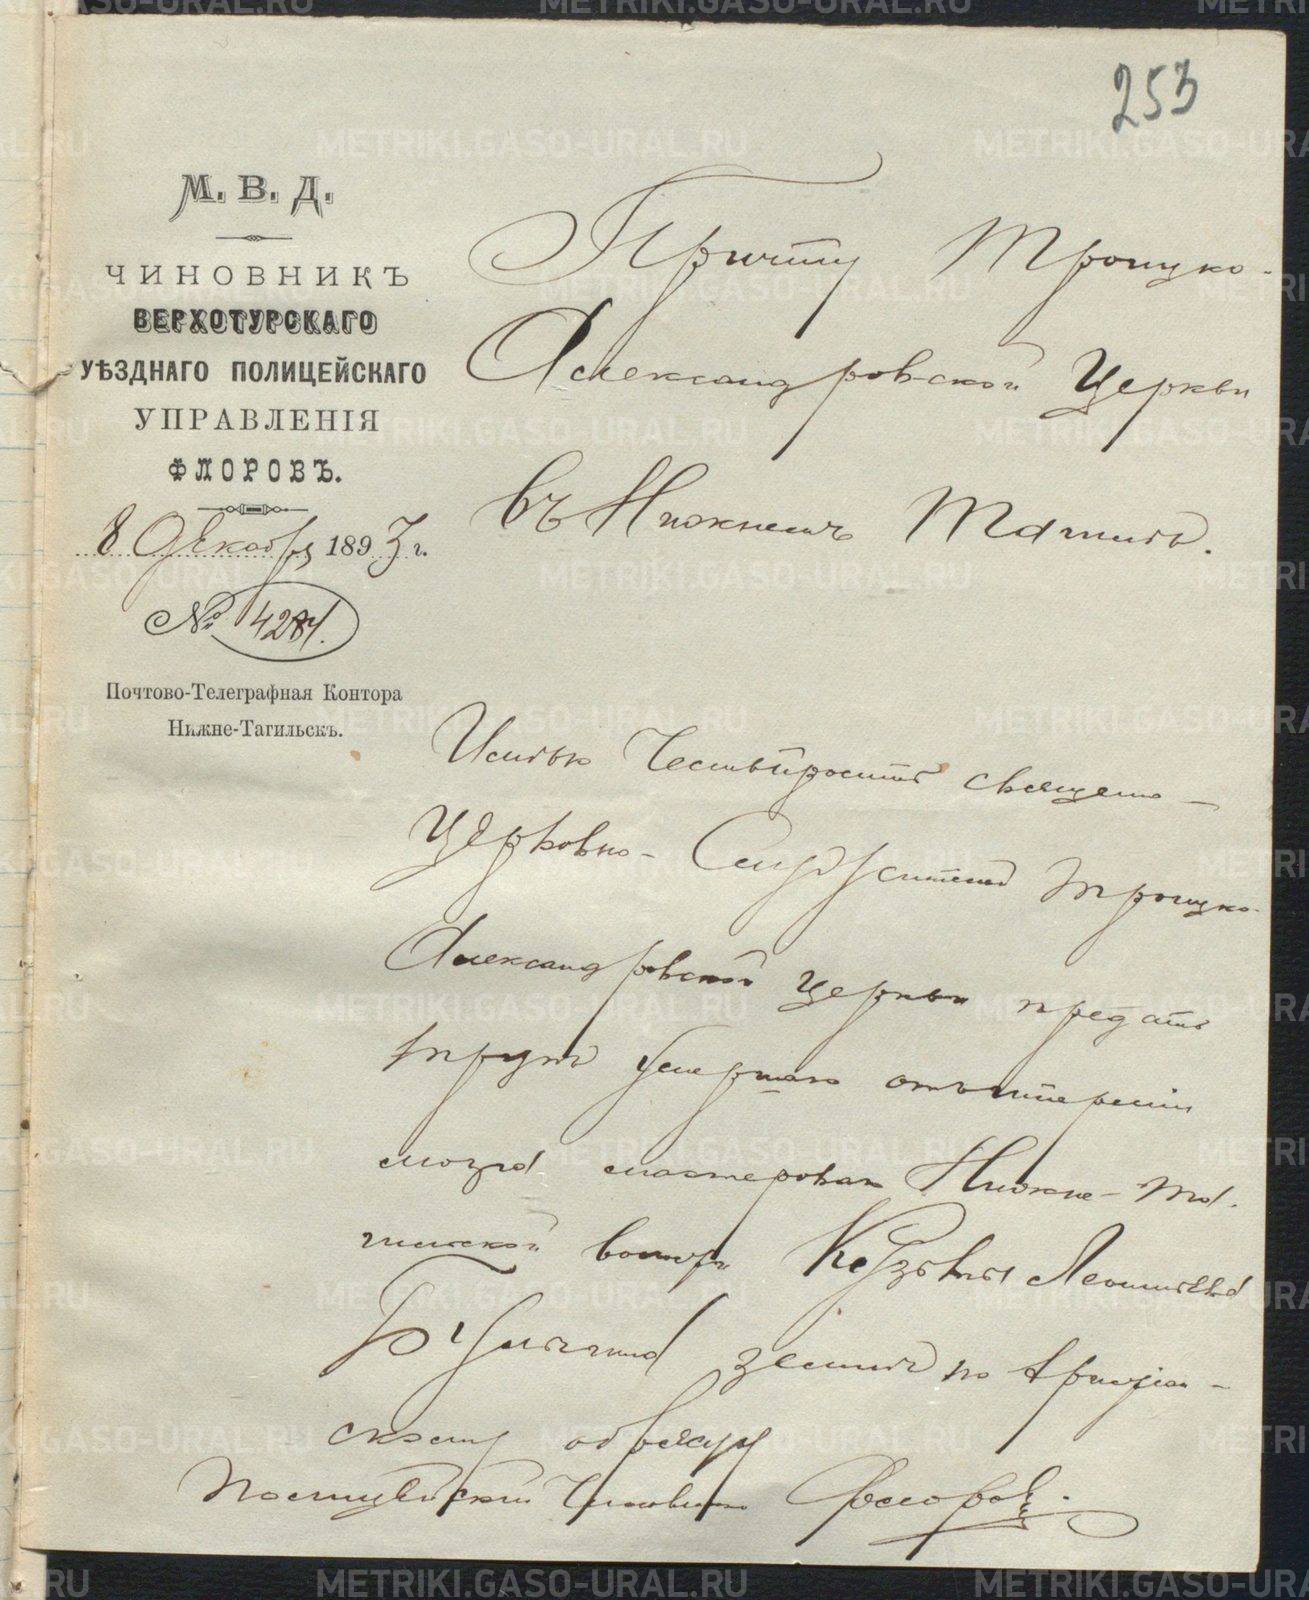 253
М. В. Д.
ЧИНОВНИКЪ
ВЕРХОТУРСКАГО
УѢЗДНАГО ПОЛИЦЕЙСКАГО
УПРАВЛЕНІЯ
ФЛОРОВЪ.
8 Декабря 1893 г.
№ 4284.
Почтово-Телеграфная Контора
Нижне-Тагильскъ.
Причту Троицко-
Александровской Церкви
въ Нижнемъ Тагилѣ.
Имѣю Честь просить священно-
Церковно-Служителей Троицко-
Александровской Церкви предать
трупъ Умершаго отъ
мозга мастероваго Нижне-Та-
гильской волости Леонтьева
землѣ по Христіан-
скому обряду
Полицейскій Чиновникъ Флоровъ.
METRIKI.GASO-URAL.RU